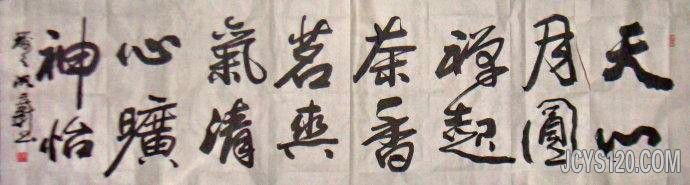 天心
月圓
禅起
茶香
茗爽
氣清
心曠
神怡
JCYS120.COM